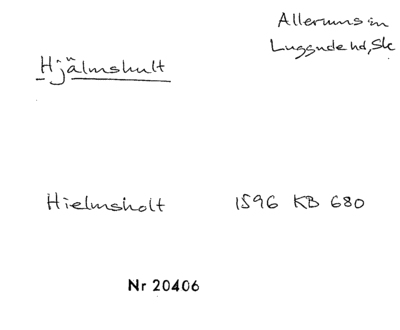 Allerums sn
Luggude hd, Sk
Hjälmshult
Hielmsholt 1596 KB 680
Nr 20406